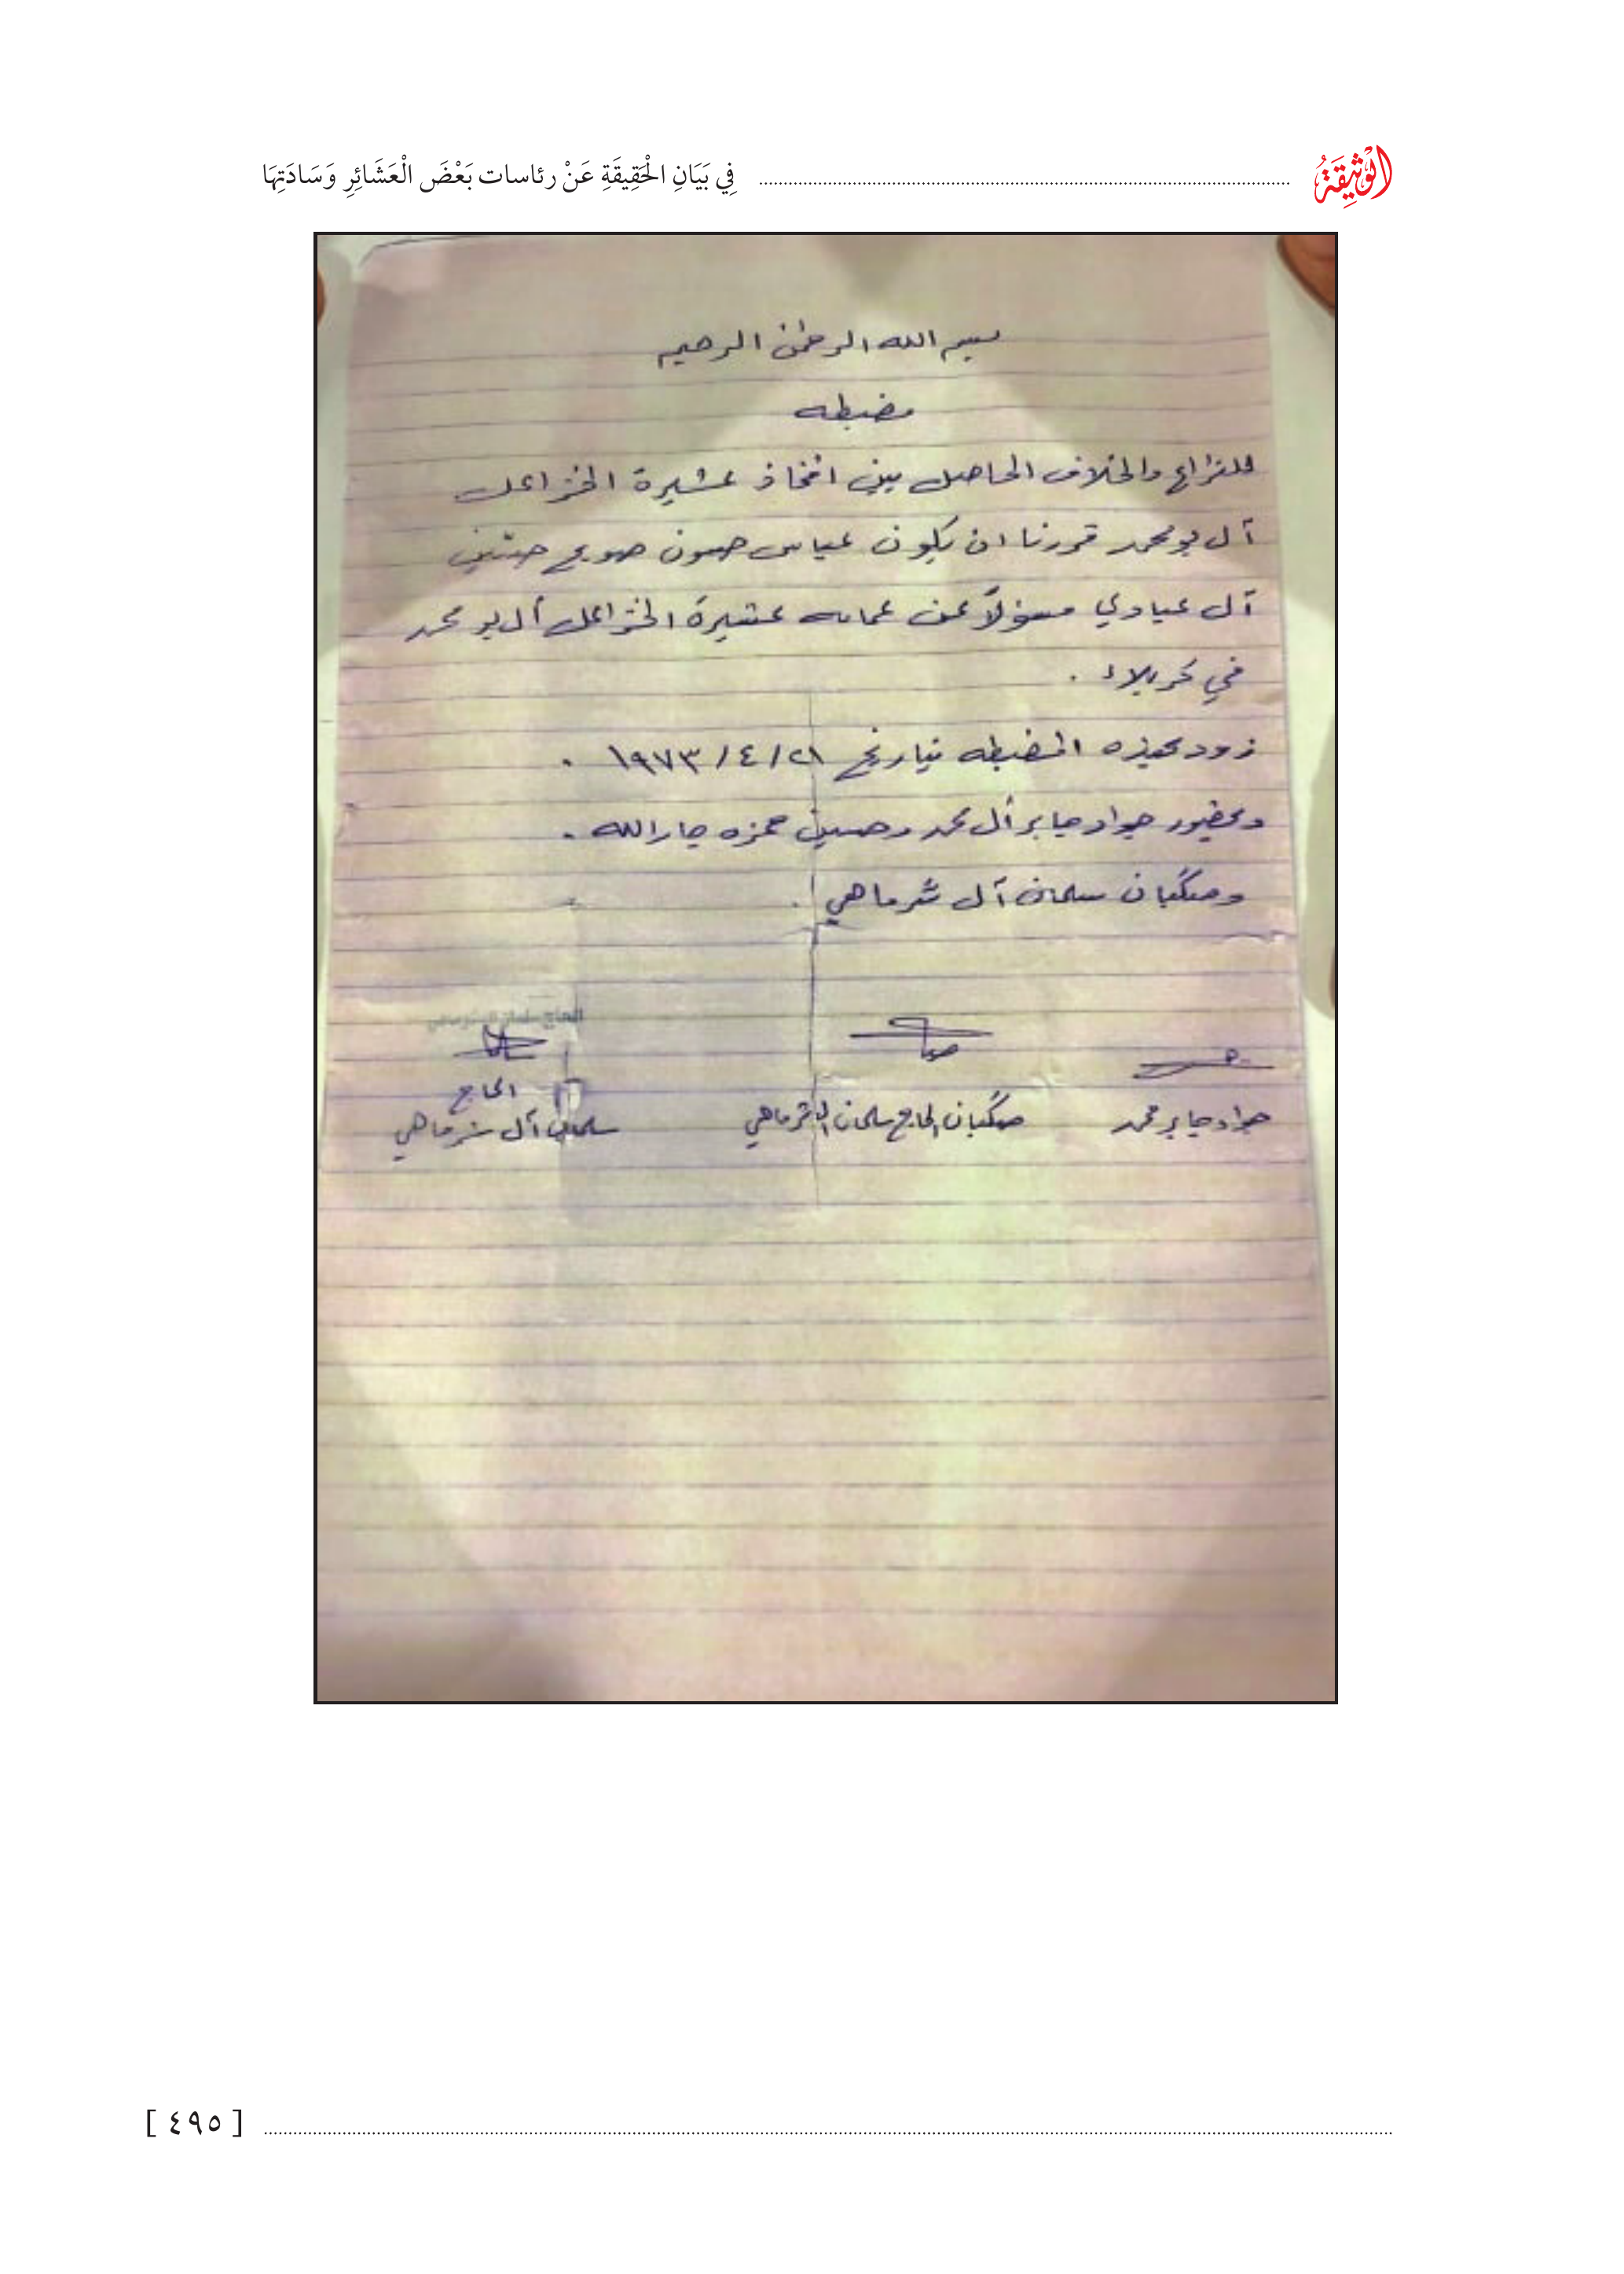 الْوَثِيقَةُ
فِي بَيَانِ الْحَقِيقَةِ عَنْ رئاسات بَعْضَ الْعَشَائِرِ وَسَادَتِهَا
بسم الله الرحمن الرحيم
مضبطه
للنزاع والخلاف الحاصل بين افخاذ عشيرة الخزاعل
آل بو محمد قررنا ان يكون عباس حسون صويح
آل عبادي مسؤلاً عن عشيرة الخزاعل آل بو محمد
في كربلاء .
زود بهذه المضبطه بتاريخ ٢١ / ٤ / ١٩٧٣ .
وبحضور جواد جابر آل محمد وحسين حمزه جار الله .
وصگبان سلمان آل شرماهي .
جواد جابر محمد
صگبان الحاج سلمان ال شرماهي
الحاج
سلمان آل شرماهي
[ ٤٩٥ ]